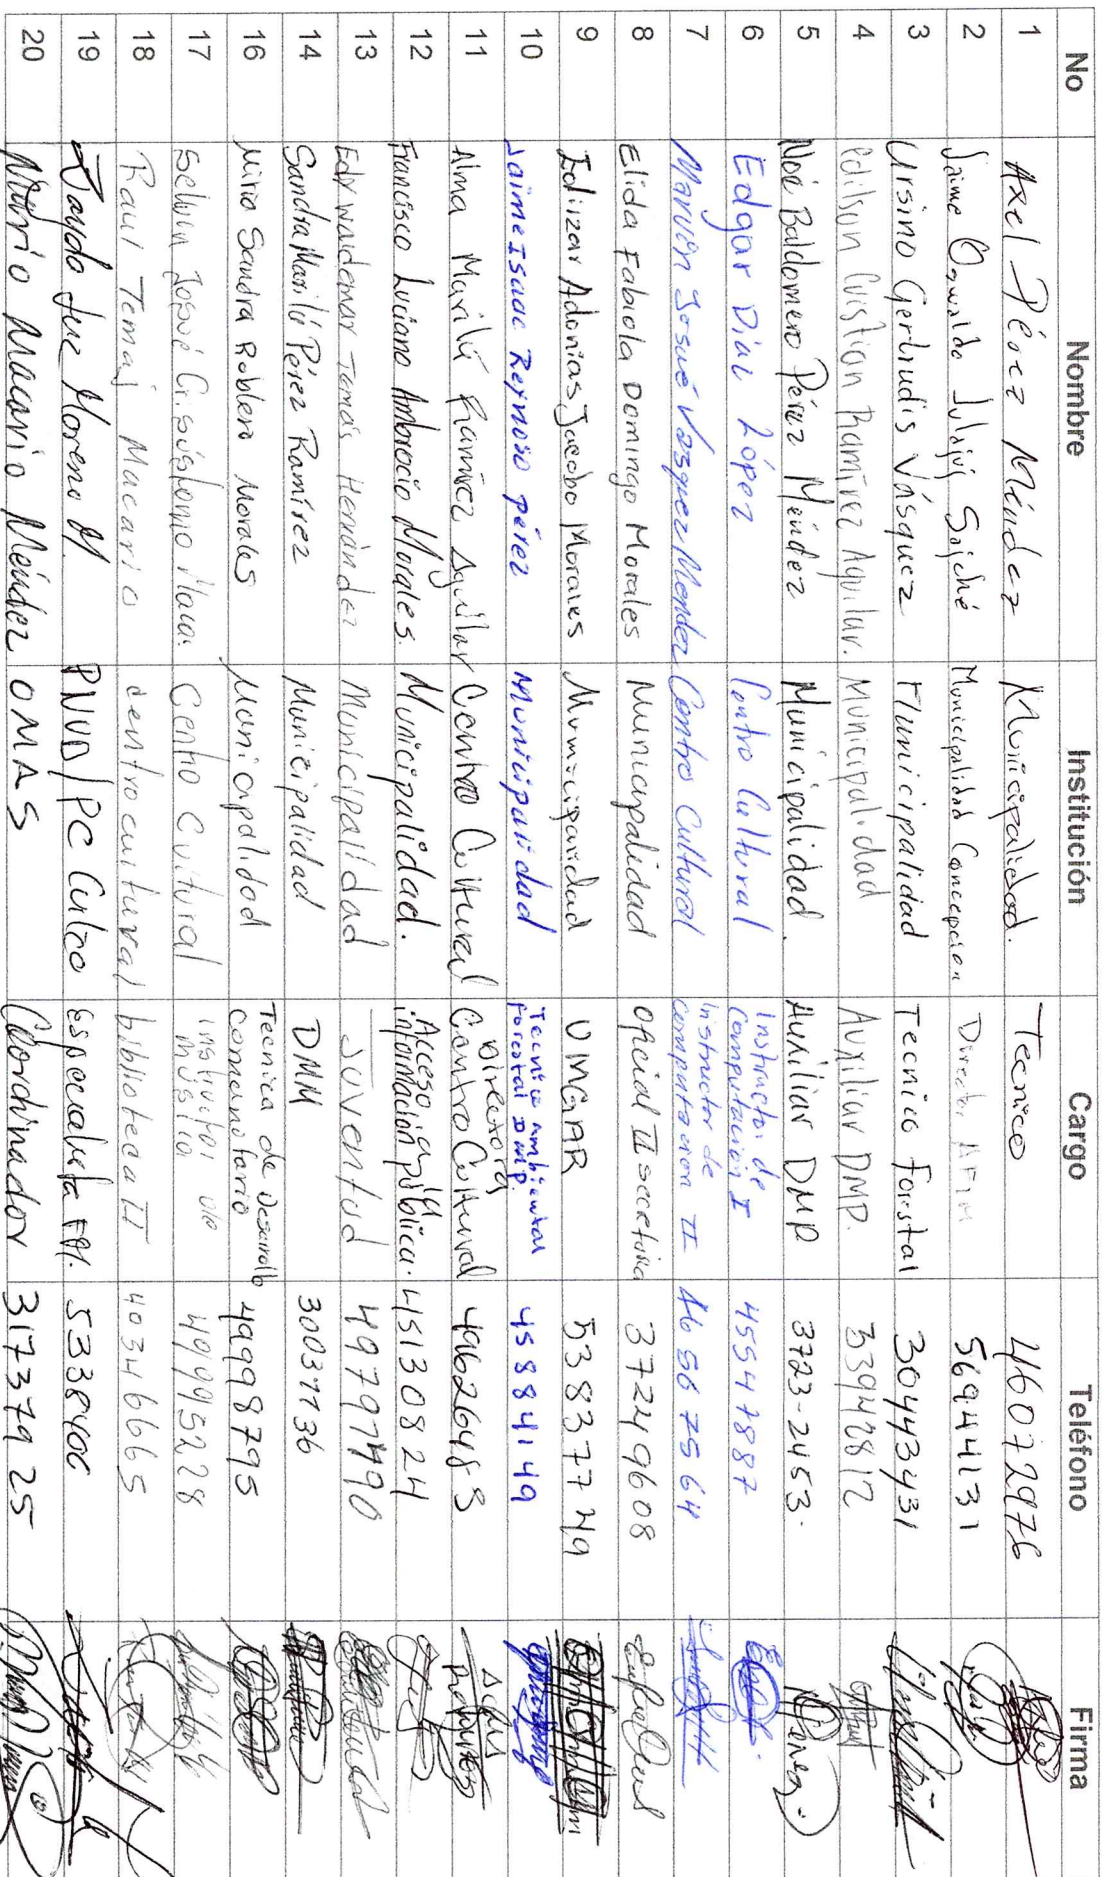 No Nombre Institución Cargo Teléfono Firma
1 Axel Pérez Méndez Municipalidad. Tecnico 46072976
2 Jaime Oswaldo Municipalidad Concepcion Director 56944131
3 Ursino Gertrudis Vásquez Municipalidad Tecnico forestal 30443431
4 Edilson Cristian Ramírez Aguilar. Municipalidad Auxiliar DMP. 33942812
5 Noé Baldomero Pérez Méndez Municipalidad. Auxiliar DMP 3723-2453.
6 Edgar Díaz López Centro Cultural Instructor de
Computación I 45547887
7 Marvin Josué Vásquez Mendez Centro Cultural Instructor de
computacion II 46567564
8 Elida Fabiola Domingo Morales Municipalidad Oficial II secretaria 37249608
9 Edizar Adonias Jacobo Morales Municipalidad UMGAR 53837749
10 Jaime Isaac Reynoso pérez Municipalidad Tecnico Ambiental
Forestal DMP. 45884149
11 Alma Marilú Ramírez Aguilar Centro Cultural Directora
Centro Cultural 49626488
12 Francisco Luciano Ambrocio Morales. Municipalidad. Acceso a la
información pública. 45130824
13 Edy waldemar Tomás Hernández Municipalidad Juventud 49797490
14 Sandra Marilú Pérez Ramírez Municipalidad DMM 30037736
16 Miro Sandra Roblero Morales Municipalidad Tecnica de Desarrollo
comunitario 49998795
17 Selvin Josué Centro Cultural instructor de
49995228
18 Raul Temaj Macario centro cultural biblioteca II 40346665
19 Moreno M. PNUD/PC Cuilco Especialista 5338406
20 Macario Méndez OMAS Coordinador 31737925